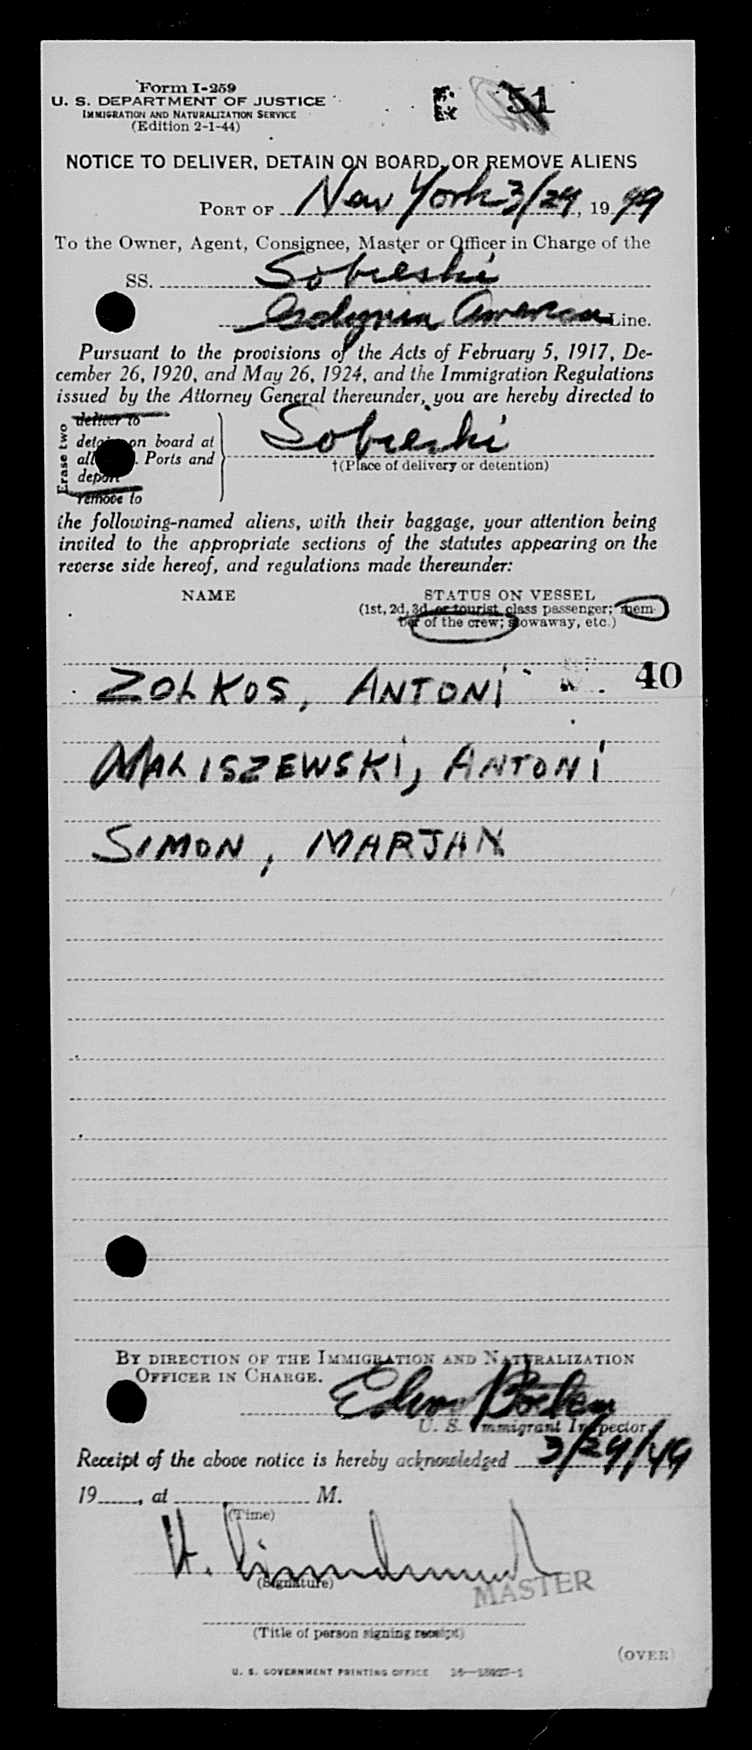 Form I-259
U. S. DEPARTMENT OF JUSTICE
IMMIGRATION AND NATURALIZATION SERVICE
(Edition 2-1-44)
51
NOTICE TO DELIVER, DETAIN ON BOARD, OR REMOVE ALIENS
PORT OF New York 3/29, 1949
To the Owner, Agent, Consignee, Master or Officer in Charge of the
SS. Sobieski
American Line.
Pursuant to the provisions of the Acts of February 5, 1917, De-
cember 26, 1920, and May 26, 1924, and the Immigration Regulations
issued by the Attorney General thereunder, you are hereby directed to
Erase two
deliver to
detain on board at Sobieski
all Ports and †(Place of delivery or detention)
deport
remove to
the following-named aliens, with their baggage, your attention being
invited to the appropriate sections of the statutes appearing on the
reverse side hereof, and regulations made thereunder:
NAME STATUS ON VESSEL
(1st, 2d, 3d, or tourist class passenger; mem-
ber of the crew; stowaway, etc.)
ZOLKOS, ANTONI 40
MALISZEWSKI, ANTONI
SIMON, MARJAN
BY DIRECTION OF THE IMMIGRATION AND NATURALIZATION
OFFICER IN CHARGE.
U. S. Immigrant Inspector.
Receipt of the above notice is hereby acknowledged 3/29/49
19____, at ____ M.
(Time)
H.
(Signature)
MASTER
(Title of person signing receipt)
(OVER)
U. S. GOVERNMENT PRINTING OFFICE 16—18027-1